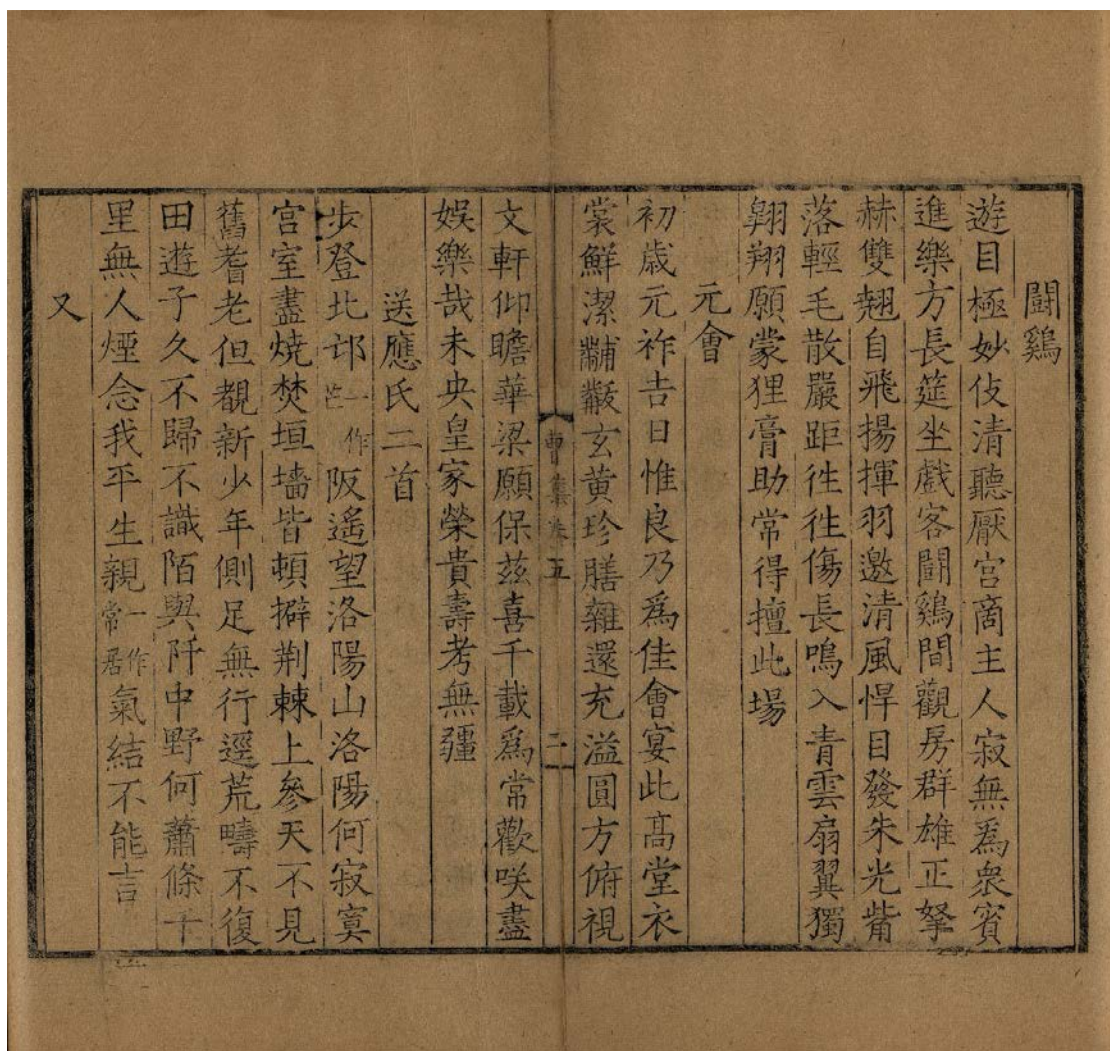 闘鷄
遊目極妙伎清聽厭宮商主人寂無爲衆賓
進樂方長筵坐戲客闘鷄間觀房群雄正拏
赫雙翹自飛揚揮羽邀清風悍目發朱光觜
落輕毛散嚴距徃徃傷長鳴入青雲扇翼獨
翺翔願蒙狸膏助常得擅此場
元會
初歳元祚吉日惟良乃爲佳會宴此髙堂衣
裳鮮潔黼黻玄黄珍膳雜還充溢圓方俯視
曹集卷五 二
文軒仰瞻華梁願保兹喜千載爲常歡咲盡
娯樂哉未央皇家榮貴壽考無疆
送應氏二首
歩登北邙一作芒阪遙望洛陽山洛陽何寂寞
宫室盡燒焚垣墻皆頓擗荆棘上參天不見
舊耆老但覩新少年側足無行逕荒疇不復
田遊子久不歸不識陌與阡中野何蕭條千
里無人煙念我平生親一作常居氣結不能言
又